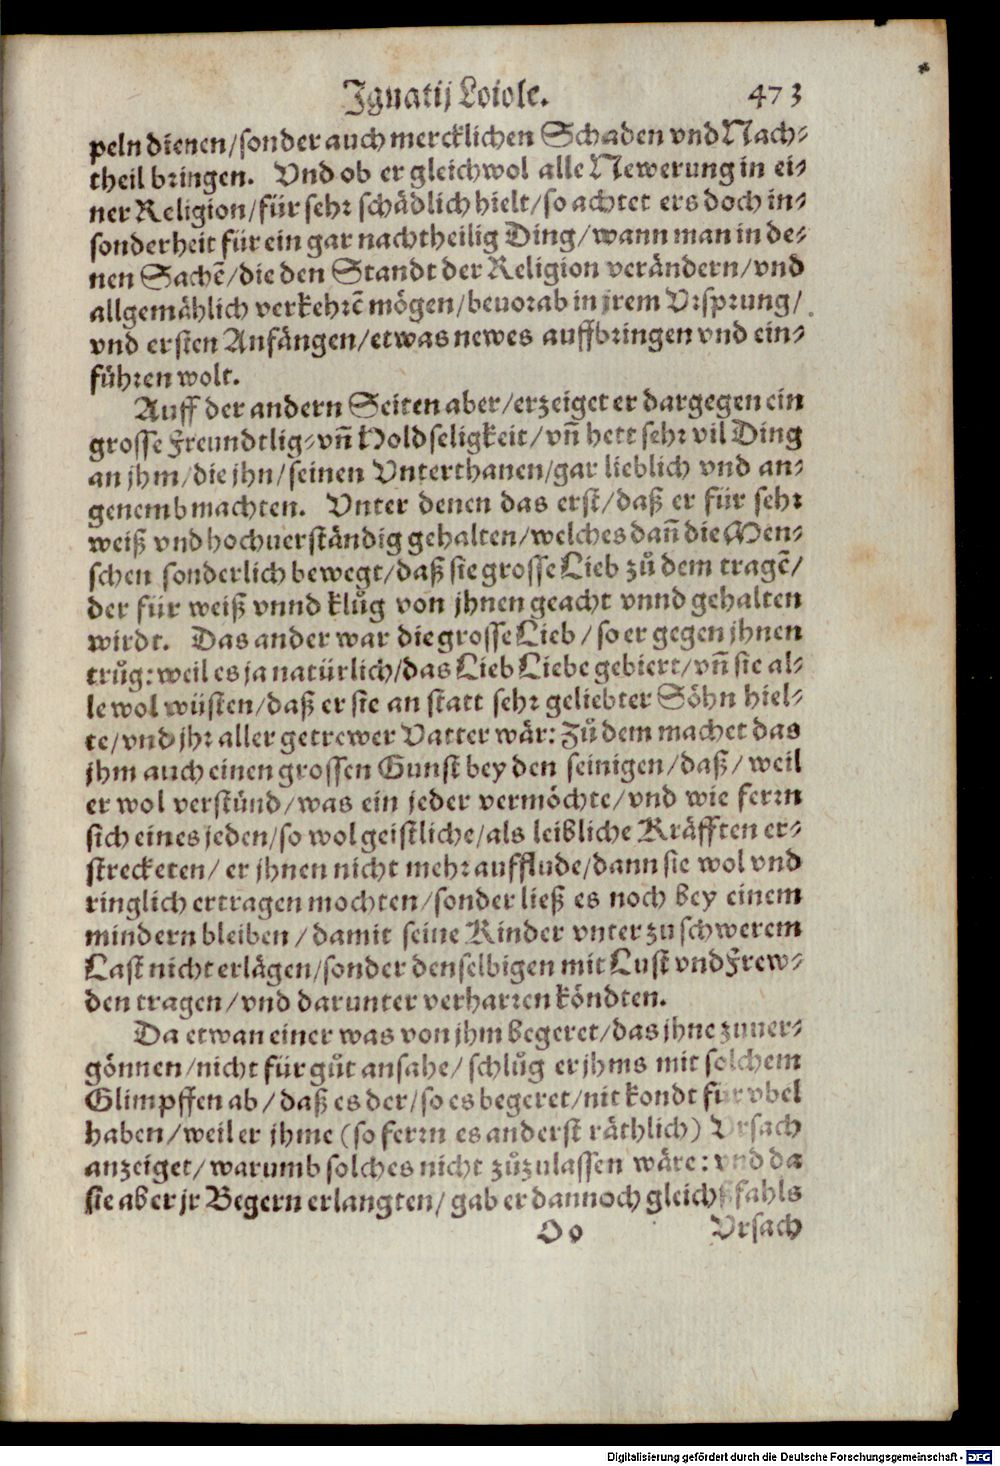 Ignatij Loiole. 473
peln dienen/sonder auch mercklichen Schaden vnd Nach-
theil bringen. Vnd ob er gleichwol alle Newerung in ei-
ner Religion/für sehr schädlich hielt/so achtet ers doch in-
sonderheit für ein gar nachtheilig Ding/wann man in de-
nen Sachē/die den Standt der Religion verändern/vnd
allgemählich verkehrē mögen/beuorab in jrem Vrsprung/
vnd ersten Anfängen/etwas newes auffbringen vnd ein-
führen wolt.
Auff der andern Seiten aber/erzeiget er dargegen ein
grosse Freundtlig-vñ Holdseligkeit/vñ hett sehr vil Ding
an jhm/die jhn/seinen Vnterthanen/gar lieblich vnd an-
genemb machten. Vnter denen das erst/daß er für sehr
weiß vnd hochuerständig gehalten/welches dañ die Men-
schen sonderlich bewegt/daß sie grosse Lieb zů dem tragē/
der für weiß vnnd klůg von jhnen geacht vnnd gehalten
wirdt. Das ander war die grosse Lieb/so er gegen jhnen
trůg: weil es ja natürlich/das Lieb Liebe gebiert/vñ sie al-
le wol wüsten/daß er sie an statt sehr geliebter Söhn hiel-
te/vnd jhr aller getrewer Vatter wär: Zů dem machet das
jhm auch einen grossen Gunst bey den seinigen/daß/weil
er wol verstünd/was ein jeder vermöchte/vnd wie ferrn
sich eines jeden/so wol geistliche/als leibliche Kräfften er-
strecketen/er jhnen nicht mehr aufflude/dann sie wol vnd
ringlich ertragen mochten/sonder ließ es noch bey einem
mindern bleiben/damit seine Kinder vnter zu schwerem
Last nicht erlägen/sonder denselbigen mit Lust vnd Frew-
den tragen/vnd darunter verharren köndten.
Da etwan einer was von jhm begeret/das jhne zuuer-
gönnen/nicht für gůt ansahe/schlůg er jhms mit solchem
Glimpffen ab/daß es der/so es begeret/nit kondt für vbel
haben/weil er jhme (so ferrn es anderst räthlich) Vrsach
anzeiget/warumb solches nicht zůzulassen wäre: vnd da
sie aber jr Begern erlangten/gab er dannoch gleichßfahls
Oo Vrsach
Digitalisierung gefördert durch die Deutsche Forschungsgemeinschaft - DFG